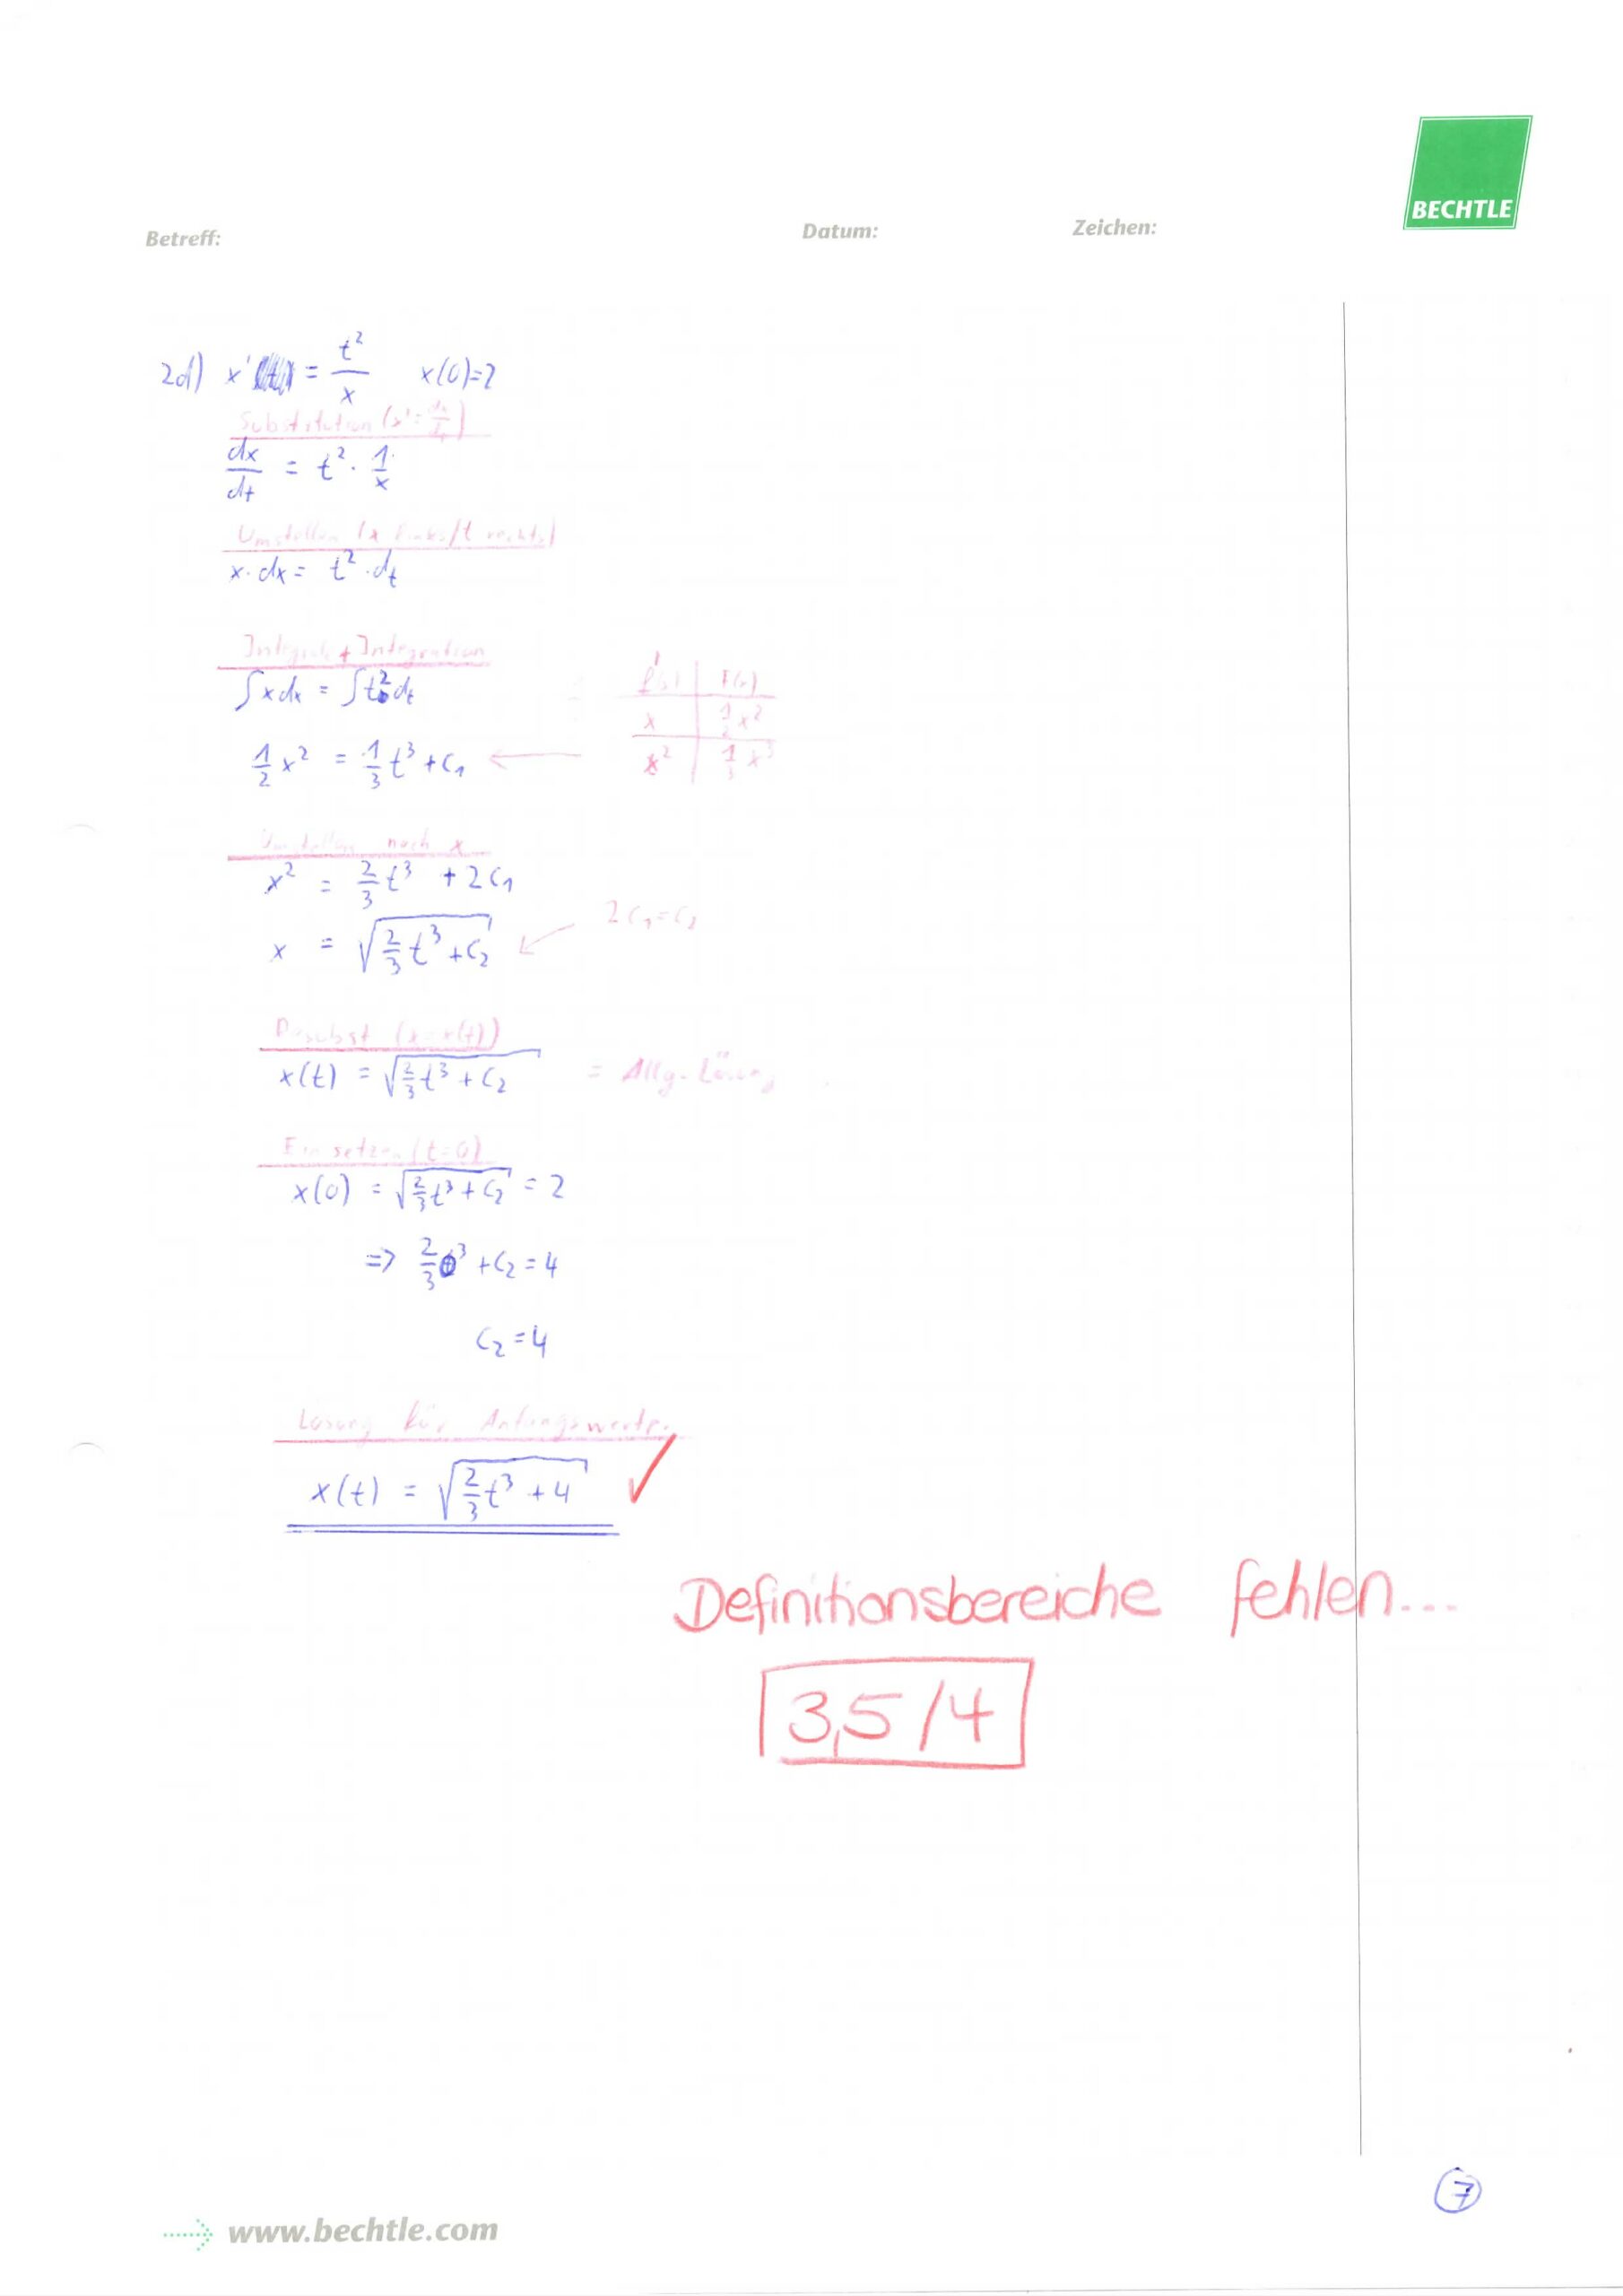 BECHTLE
Betreff: Datum: Zeichen:
2d) x' = t²/x x(0)=2
Substitution (x' = dx/dt)
dx/dt = t² · 1/x
Umstellen (x links/t rechts)
x · dx = t² · dt
Integrale + Integration
∫x dx = ∫t² dt
f(x) | F(x)
x | 1/2 x²
x² | 1/3 x³
1/2 x² = 1/3 t³ + C₁ ←
Umstellen nach x
x² = 2/3 t³ + 2C₁
2C₁ = C₂
x = √(2/3 t³ + C₂)
Resubst (x = x(t))
x(t) = √(2/3 t³ + C₂) = Allg. Lösung
Einsetzen (t=0)
x(0) = √(2/3 t³ + C₂) = 2
=> 2/3 0³ + C₂ = 4
C₂ = 4
Lösung für Anfangswertp.
x(t) = √(2/3 t³ + 4) ✓
Definitionsbereiche fehlen...
3,5/4
7
www.bechtle.com